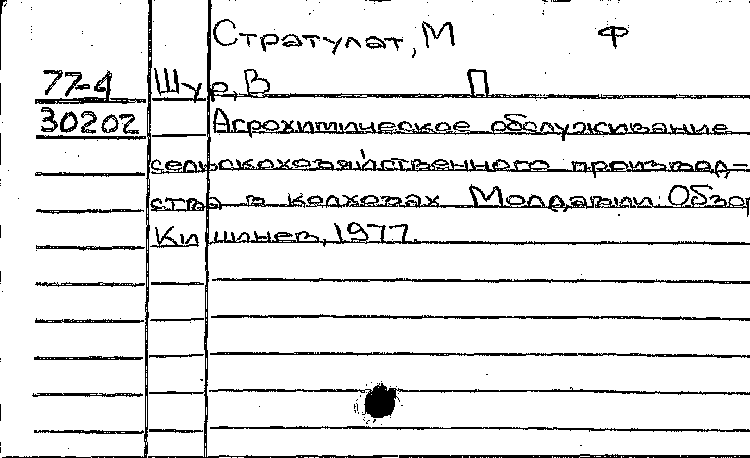 Стратулат, М Ф
77-4 Шур, В П
30202 Агрохимическое обслуживание
сельскохозяйственного производ-
ства в колхозах Молдавии. Обзор
Кишинев, 1977.